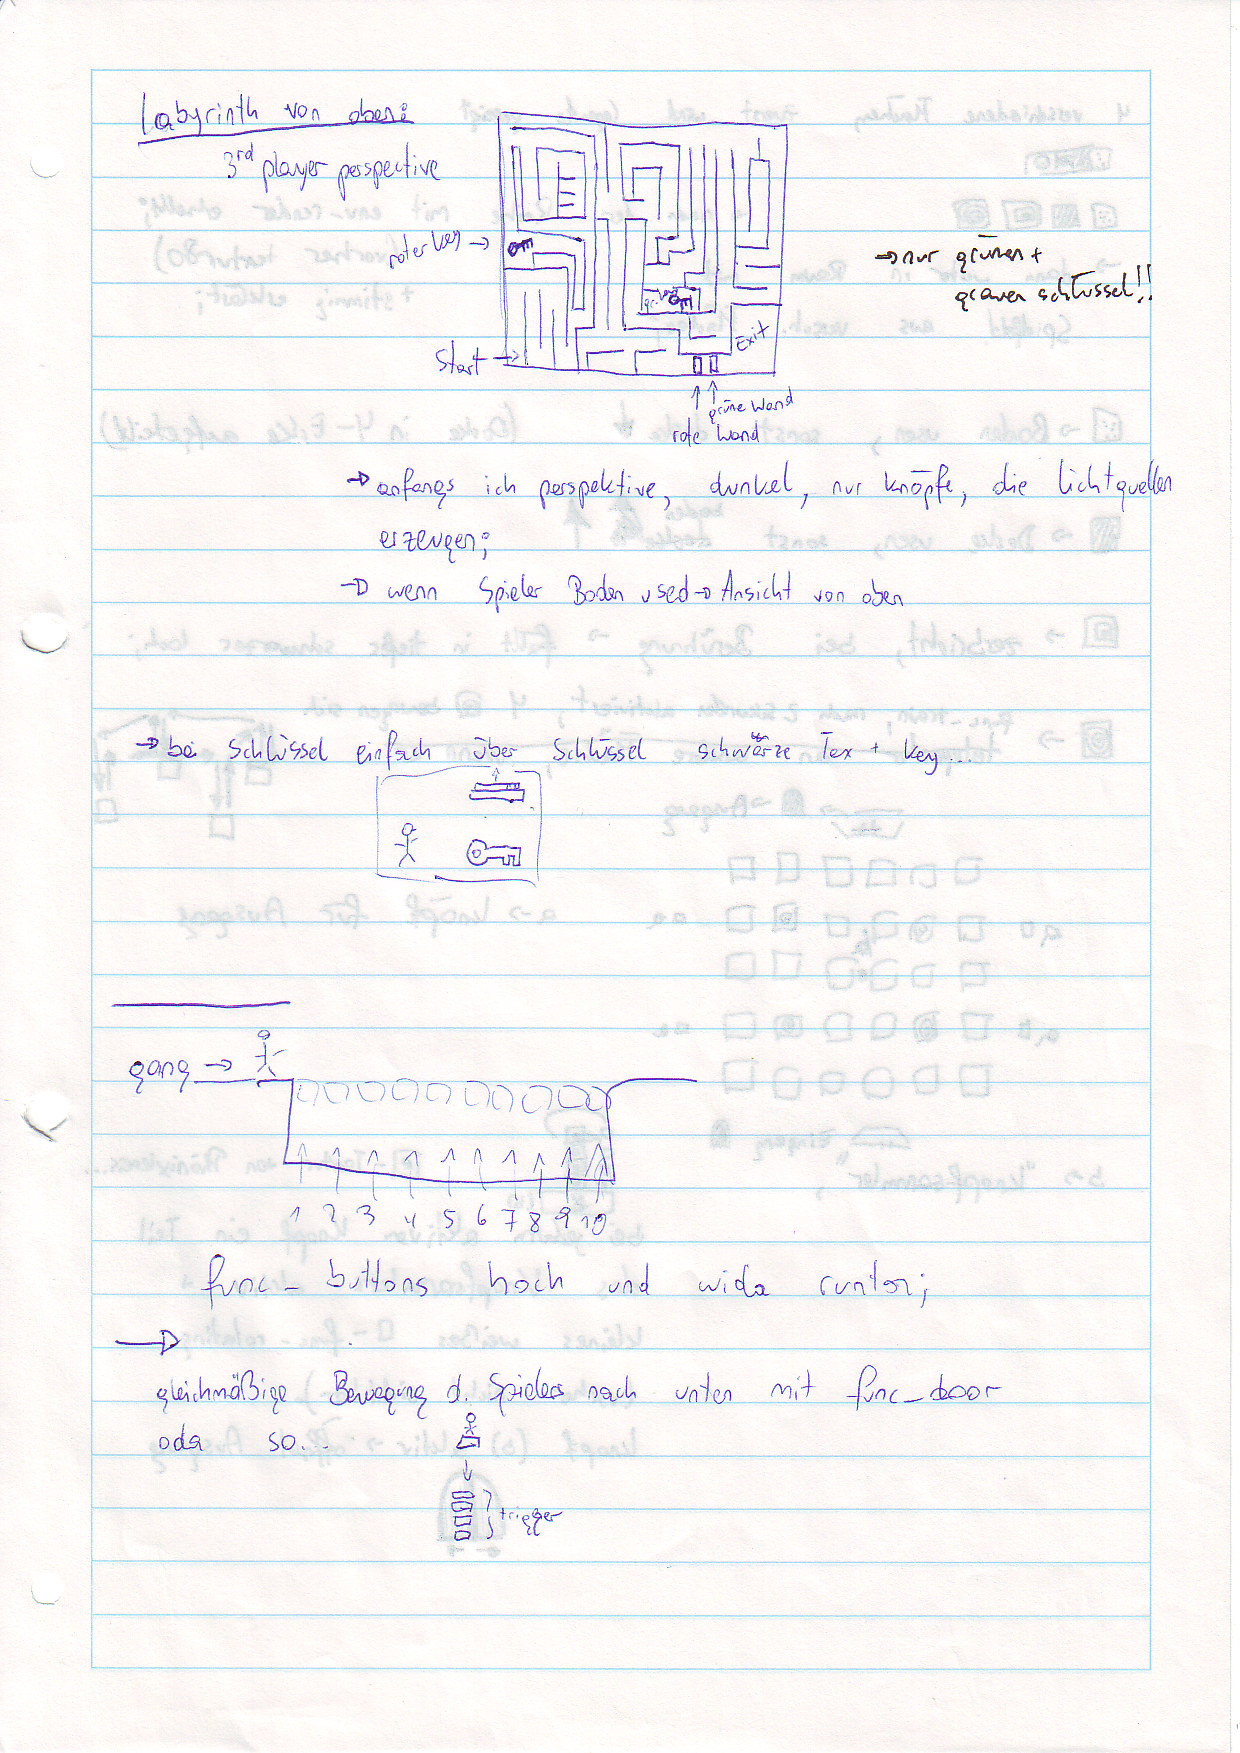 Labyrinth von oben:
3rd player perspective
roter key →
→ nur grünen +
grauen schlüssel!!
Start →
Exit
grüne Wand
rote Wand
→ anfangs ich perspektive, dunkel, nur knöpfe, die lichtquellen
erzeugen;
→ wenn Spieler Boden used → Ansicht von oben
→ bei Schlüssel einfach über Schlüssel schwarze Tex + key...
gang →
1 2 3 4 5 6 7 8 9 10
func_buttons hoch und wida runter;
→
gleichmäßige Bewegung d. Spielers nach unten mit func_door
oda so...
trigger